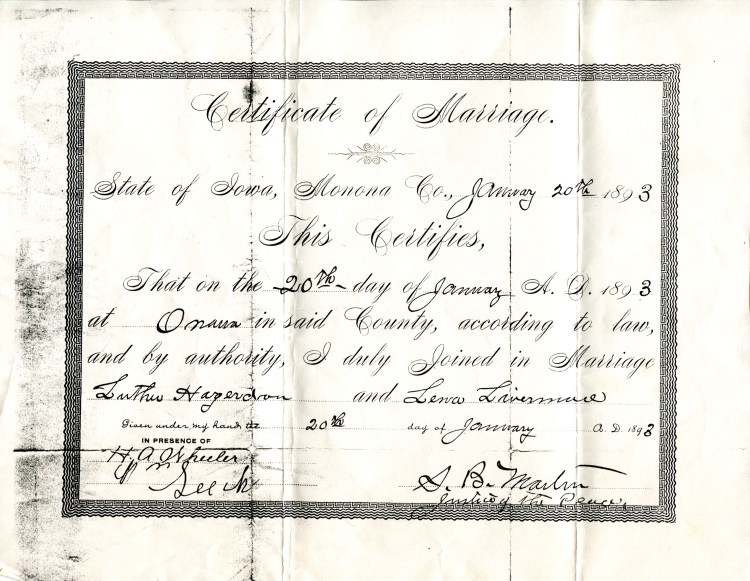 Certificate of Marriage.
State of Iowa, Monona Co., January 20th 1893
This Certifies,
That on the 20th day of January A. D. 1893
at Onawa in said County, according to law,
and by authority, I duly Joined in Marriage
Luther Hagerdon and Lena Livermore
Given under my hand the 20th day of January A. D. 1893
IN PRESENCE OF
H. A. Wheeler
S. B. Martin
Justice of the Peace.